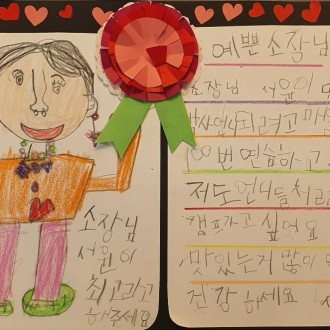 소장님
서윤이
최고라고
해주세요
예쁜 소장님
소장님 서윤이
되려고
100번 연습하고
저도 언니들처럼
캠프가고 싶어요
맛있는거 많이
건강하세요